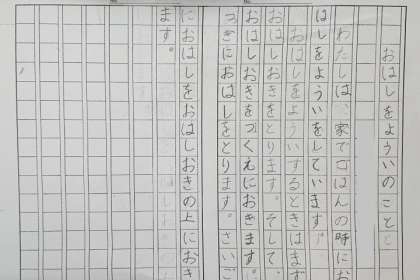 おはしをよういのこと
わたしは、家でごはんの時にお
はしをよういをしています。
おはしをよういするときはます
おはしおきをとります。そして、
おはしおきをつくえにおきます。
つぎにおはしをとります。さいご
におはしをおはしおきの上におき
ます。